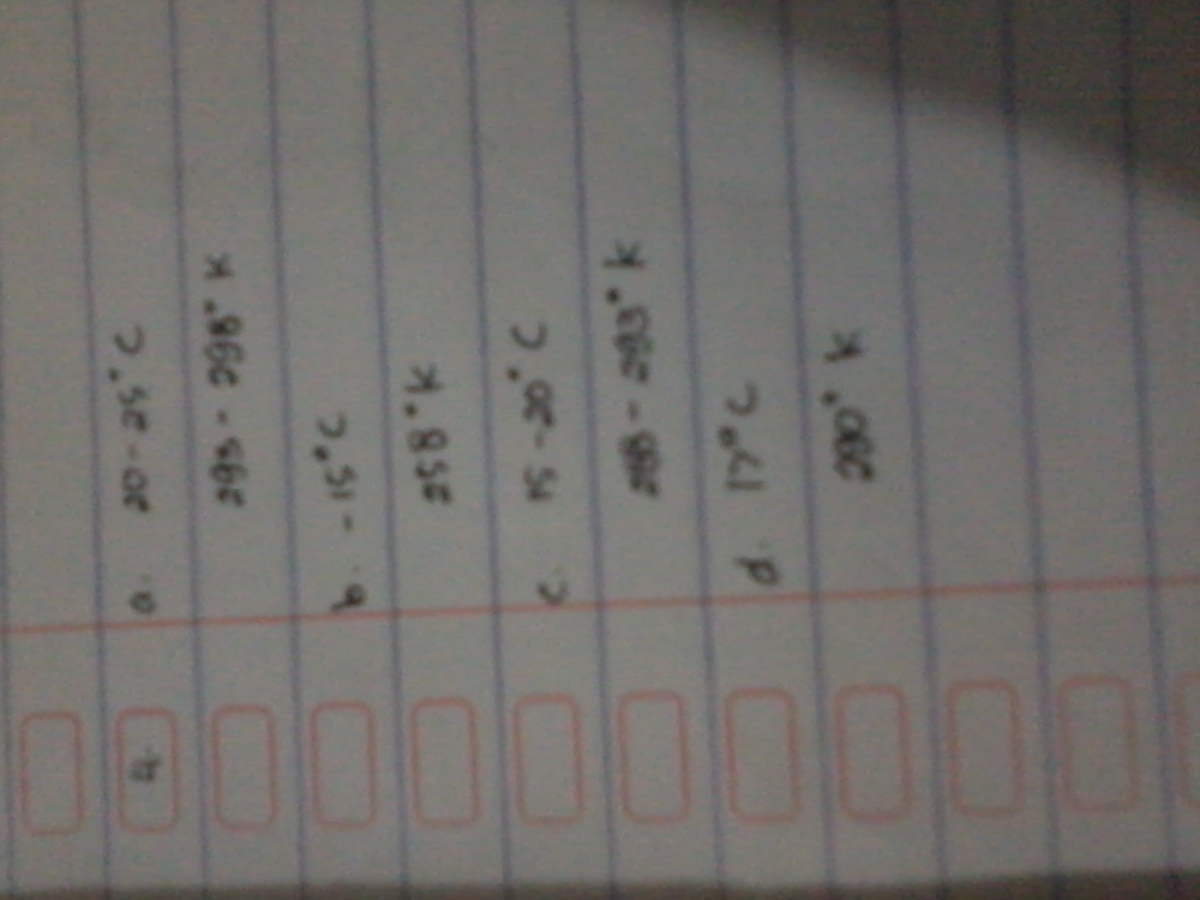 4. a. 20-25° C
293 - 298° K
b. -15°C
258°K
c. 15-20° C
288 - 293° K
d. 17°C
290° K